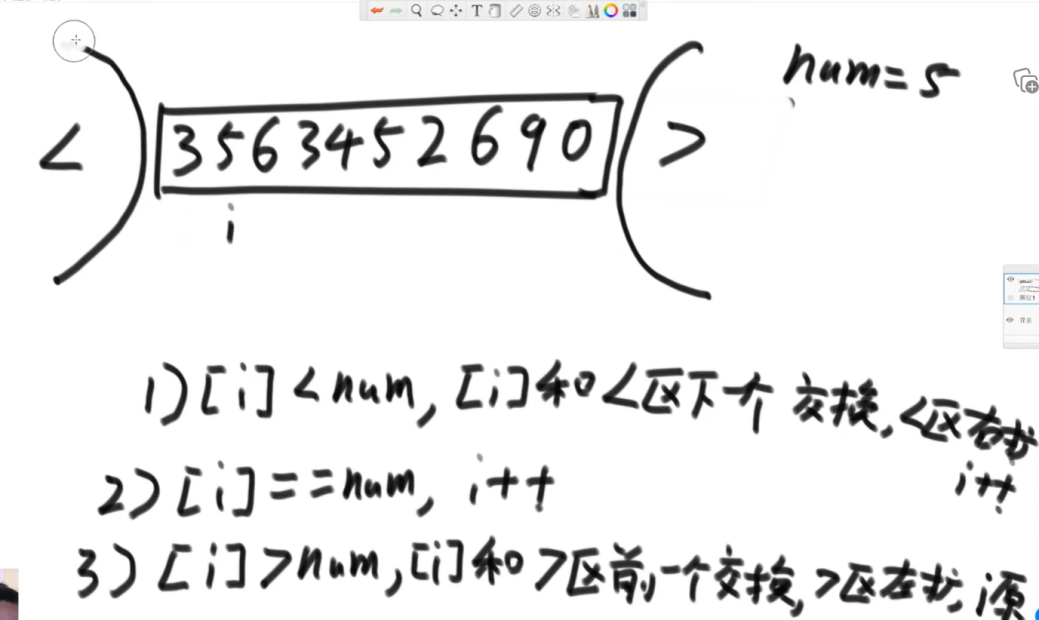 num=5
< 3 5 6 3 4 5 2 6 9 0 >
i
1) [i] < num, [i]和<区下个 交换, <区右扩
i++
2) [i] == num, i++
3) [i] > num, [i]和 >区前一个交换, >区左扩, i原